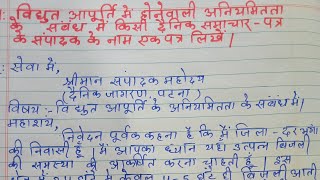 विद्युत आपूर्ति में होनेवाली अनियमितता
के संबंध में किसी दैनिक समाचार-पत्र
के संपादक के नाम एक पत्र लिखें।
सेवा में,
श्रीमान संपादक महोदय
(दैनिक जागरण, पटना)
विषय:- विद्युत आपूर्ति के अनियमितता के संबंध में।
महाशय,
निवेदन पूर्वक कहना है कि मैं जिला-दरभंगा
की निवासी हूँ। मैं आपका ध्यान यहाँ उत्पन्न बिजली
की समस्या की आकर्षित करना चाहती हूँ। इस
केवल घंटे ही बिजली आती